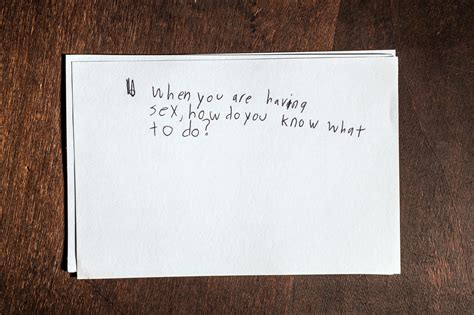 When you are having
sex, how do you know what
to do?